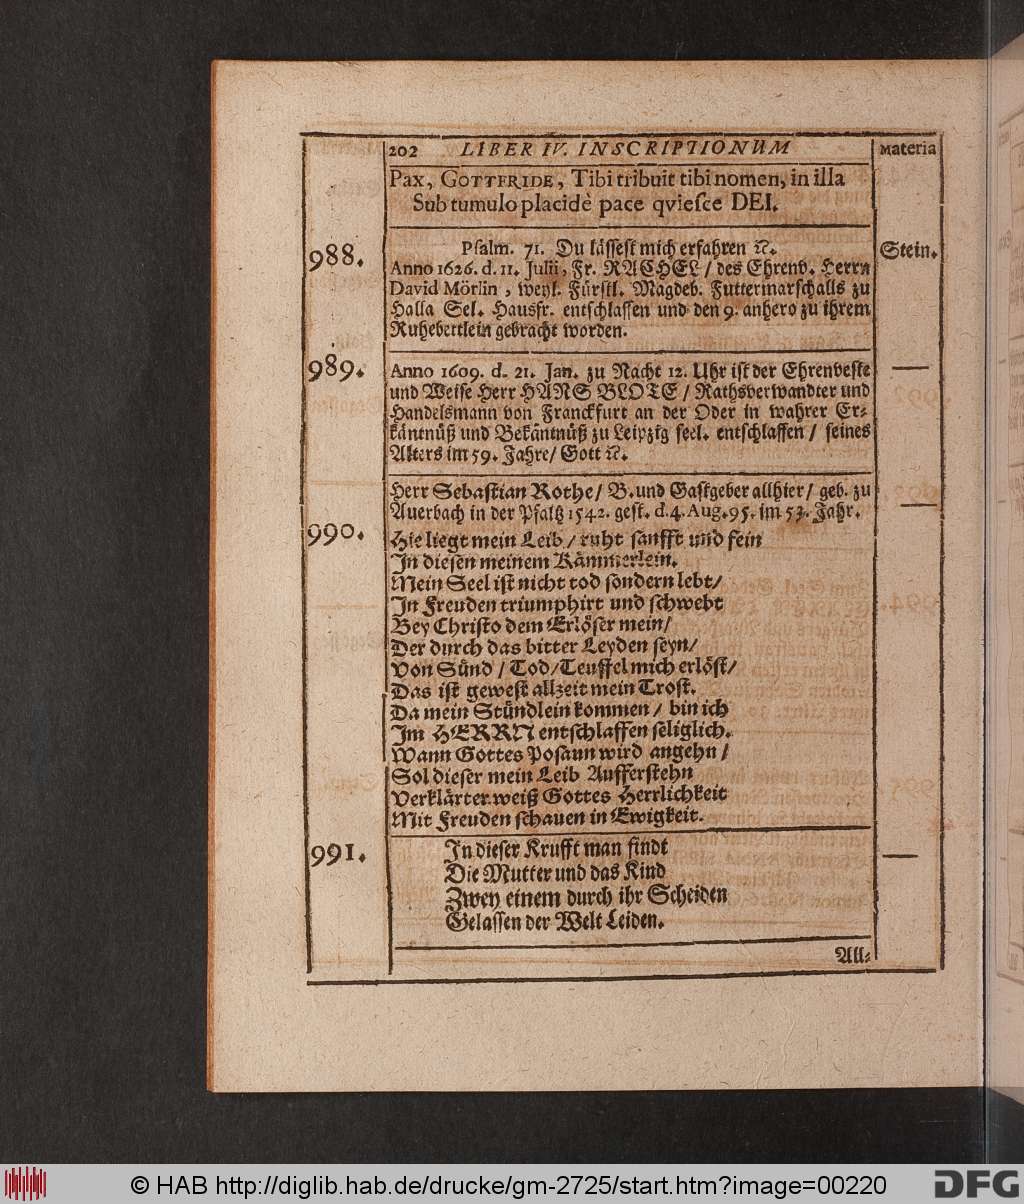 202 LIBER IV. INSCRIPTIONUM Materia
Pax, GOTTFRIDE, Tibi tribuit tibi nomen, in illa
Sub tumulo placidè pace qviesce DEI.
988. Psalm. 71. Du lässest mich erfahren ꝛc. Stein.
Anno 1626. d. 11. Julii, Fr. RACHEL / des Ehrenv. Herrn
David Mörlin, weyl. Fürstl. Magdeb. Futtermarschalls zu
Halla Sel. Hausfr. entschlaffen und den 9. anhero zu ihrem
Ruhebettlein gebracht worden.
989. Anno 1609. d. 21. Jan. zu Nacht 12. Uhr ist der Ehrenveste —
und Weise Herr HANS BLOTE / Rathsverwandter und
Handelsmann von Franckfurt an der Oder in wahrer Er-
käntnüß und Bekäntnüß zu Leipzig seel. entschlaffen / seines
Alters im 59. Jahre / Gott ꝛc.
Herr Sebastian Rothe / B. und Gastgeber allhier / geb. zu
Auerbach in der Pfaltz 1542. gest. d. 4. Aug. 95. im 53. Jahr. —
990. Hie liegt mein Leib / ruht sanfft und fein
In diesen meinem Kämmerlein.
Mein Seel ist nicht tod sondern lebt /
In Freuden triumphirt und schwebt
Bey Christo dem Erlöser mein /
Der durch das bitter Leyden seyn /
Von Sünd / Tod / Teuffel mich erlöst /
Das ist gewest allzeit mein Trost.
Da mein Stündlein kommen / bin ich
Im HERRN entschlaffen seliglich.
Wann Gottes Posaun wird angehn /
Sol dieser mein Leib Aufferstehn
Verklärter weiß Gottes Herrlichkeit
Mit Freuden schauen in Ewigkeit.
991. In dieser Krufft man findt —
Die Mutter und das Kind
Zwey einem durch ihr Scheiden
Gelassen der Welt Leiden.
All-
© HAB http://diglib.hab.de/drucke/gm-2725/start.htm?image=00220 DFG